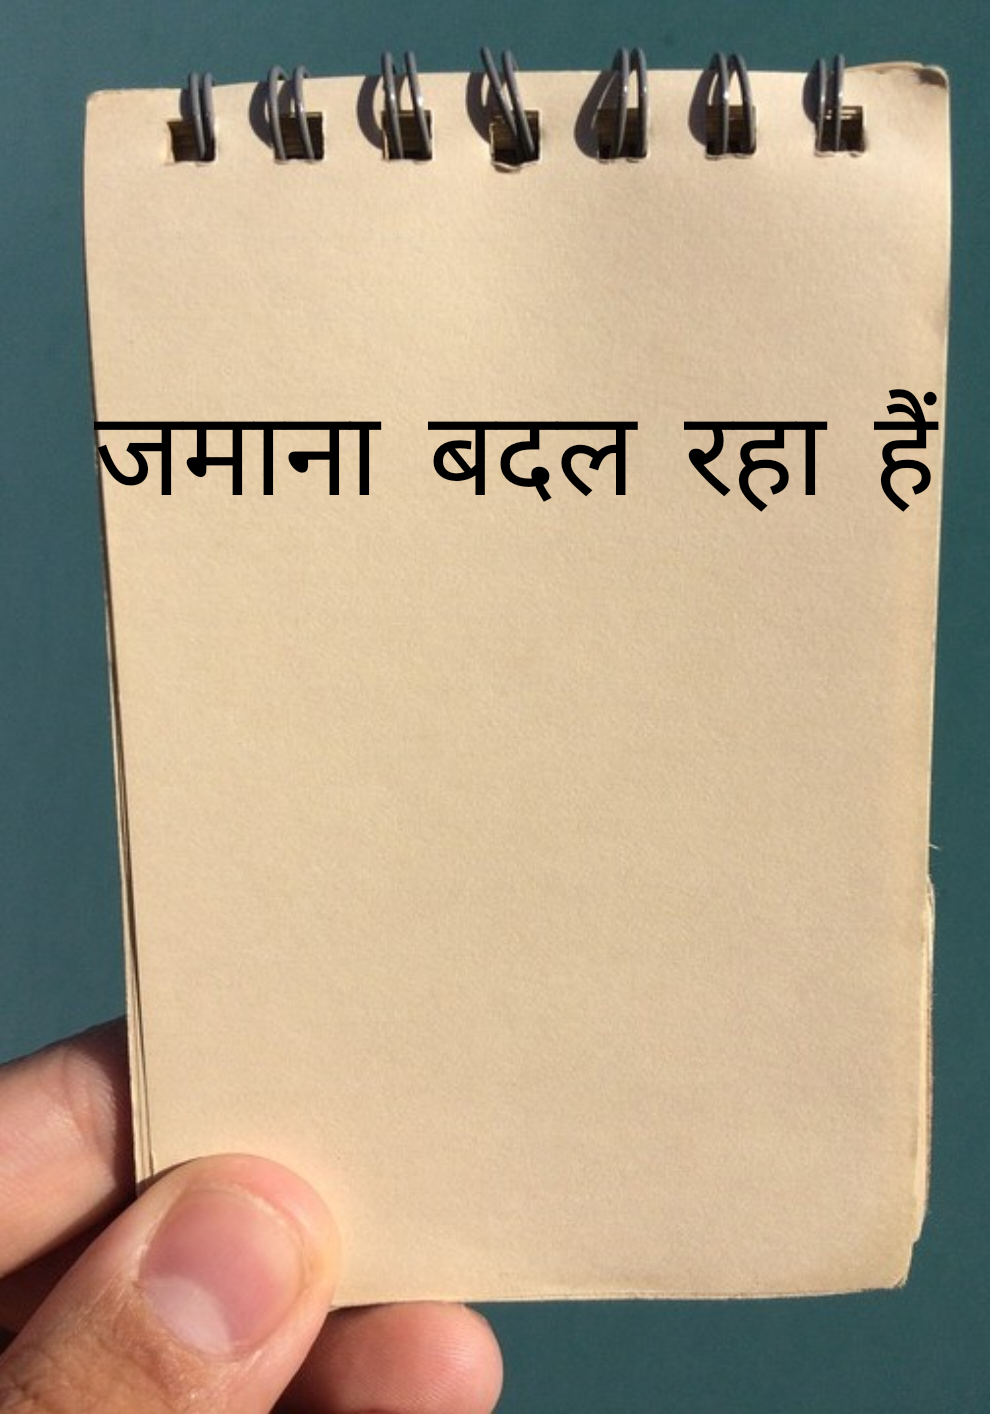 जमाना बदल रहा हैं